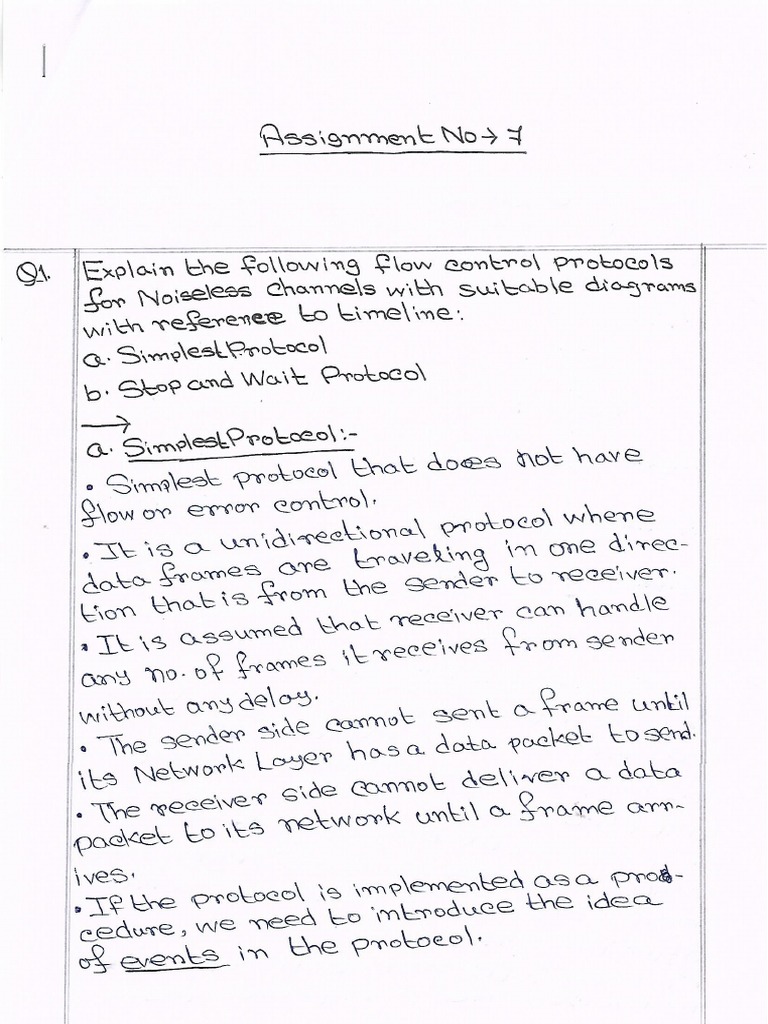 Assignment No → 7
Q1. Explain the following flow control protocols
for Noiseless channels with suitable diagrams
with reference to timeline:
a. Simplest Protocol
b. Stop and Wait Protocol
→
a. Simplest Protocol:-
• Simplest protocol that does not have
flow or error control.
• It is a unidirectional protocol where
data frames are traveling in one direc-
tion that is from the sender to receiver.
• It is assumed that receiver can handle
any no. of frames it receives from sender
without any delay.
• The sender side cannot sent a frame until
its Network Layer has a data packet to send.
• The receiver side cannot deliver a data
packet to its network until a frame arr-
ives.
• If the protocol is implemented as a pro-
cedure, we need to introduce the idea
of events in the protocol.